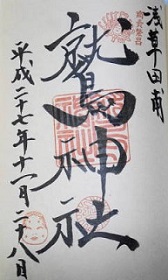 浅草田甫
鷲神社
平成二十七年十一月二十八日